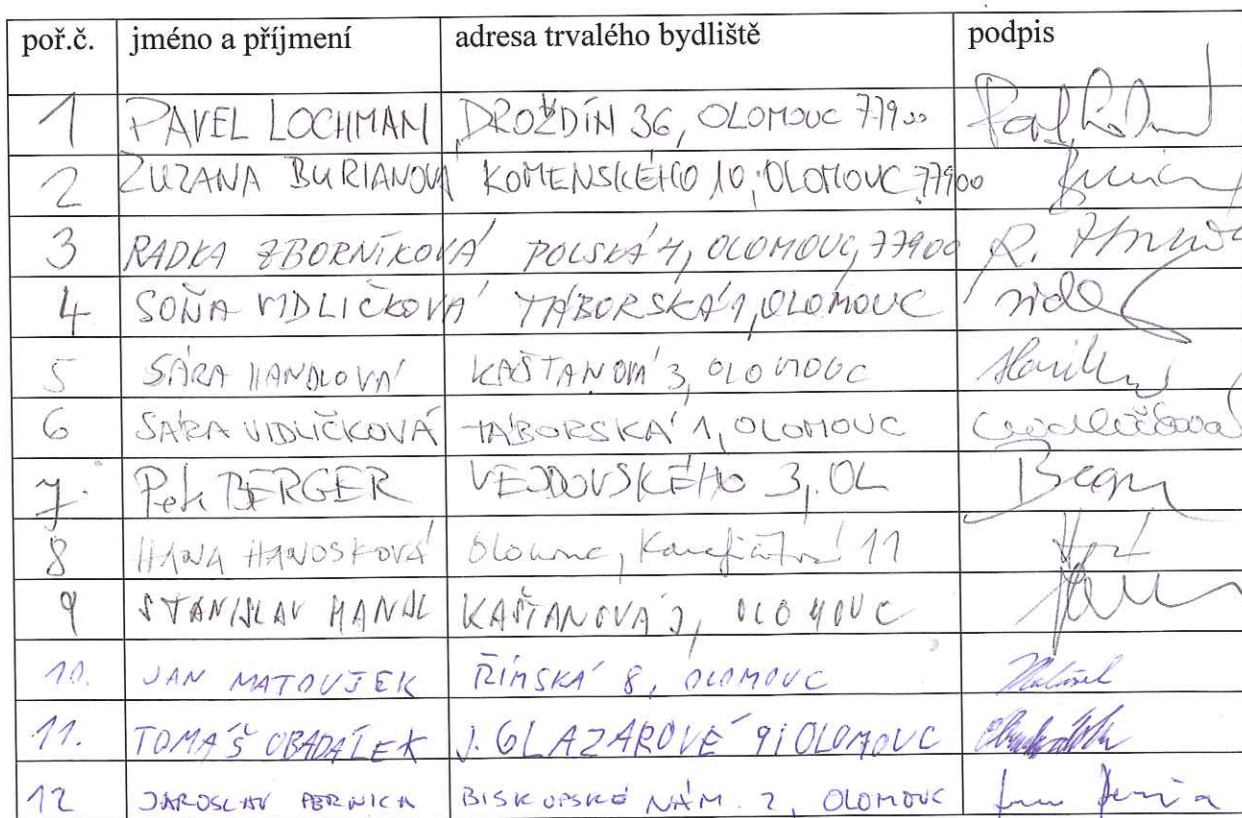 poř.č. jméno a příjmení adresa trvalého bydliště podpis
1 PAVEL LOCHMAN DROŽDÍN 36, OLOMOUC 77900
2 ZUZANA BURIANOVÁ KOMENSKÉHO 10, OLOMOUC 77900
3 RADKA ZBORNÍKOVÁ POLSKÁ 4, OLOMOUC, 77900 R.
4 SOŇA VIDLIČKOVÁ TÁBORSKÁ 1, OLOMOUC
5 SÁRA HANDLOVÁ KAŠTANOVÁ 3, OLOMOUC
6 SÁRA VIDLIČKOVÁ TÁBORSKÁ 1, OLOMOUC Vidličková
7. Petr BERGER VEJDOVSKÉHO 3, OL
8 HANA HANOSKOVÁ Olomouc, Karafiátová 11
9 STANISLAV HANDL KAŠTANOVÁ 3, OLOMOUC
10. JAN MATOUŠEK ŘÍMSKÁ 8, OLOMOUC
11. TOMÁŠ OBADÁLEK J. GLAZAROVÉ 9, OLOMOUC
12 JAROSLAV PERNICA BISKUPSKÉ NÁM. 2, OLOMOUC